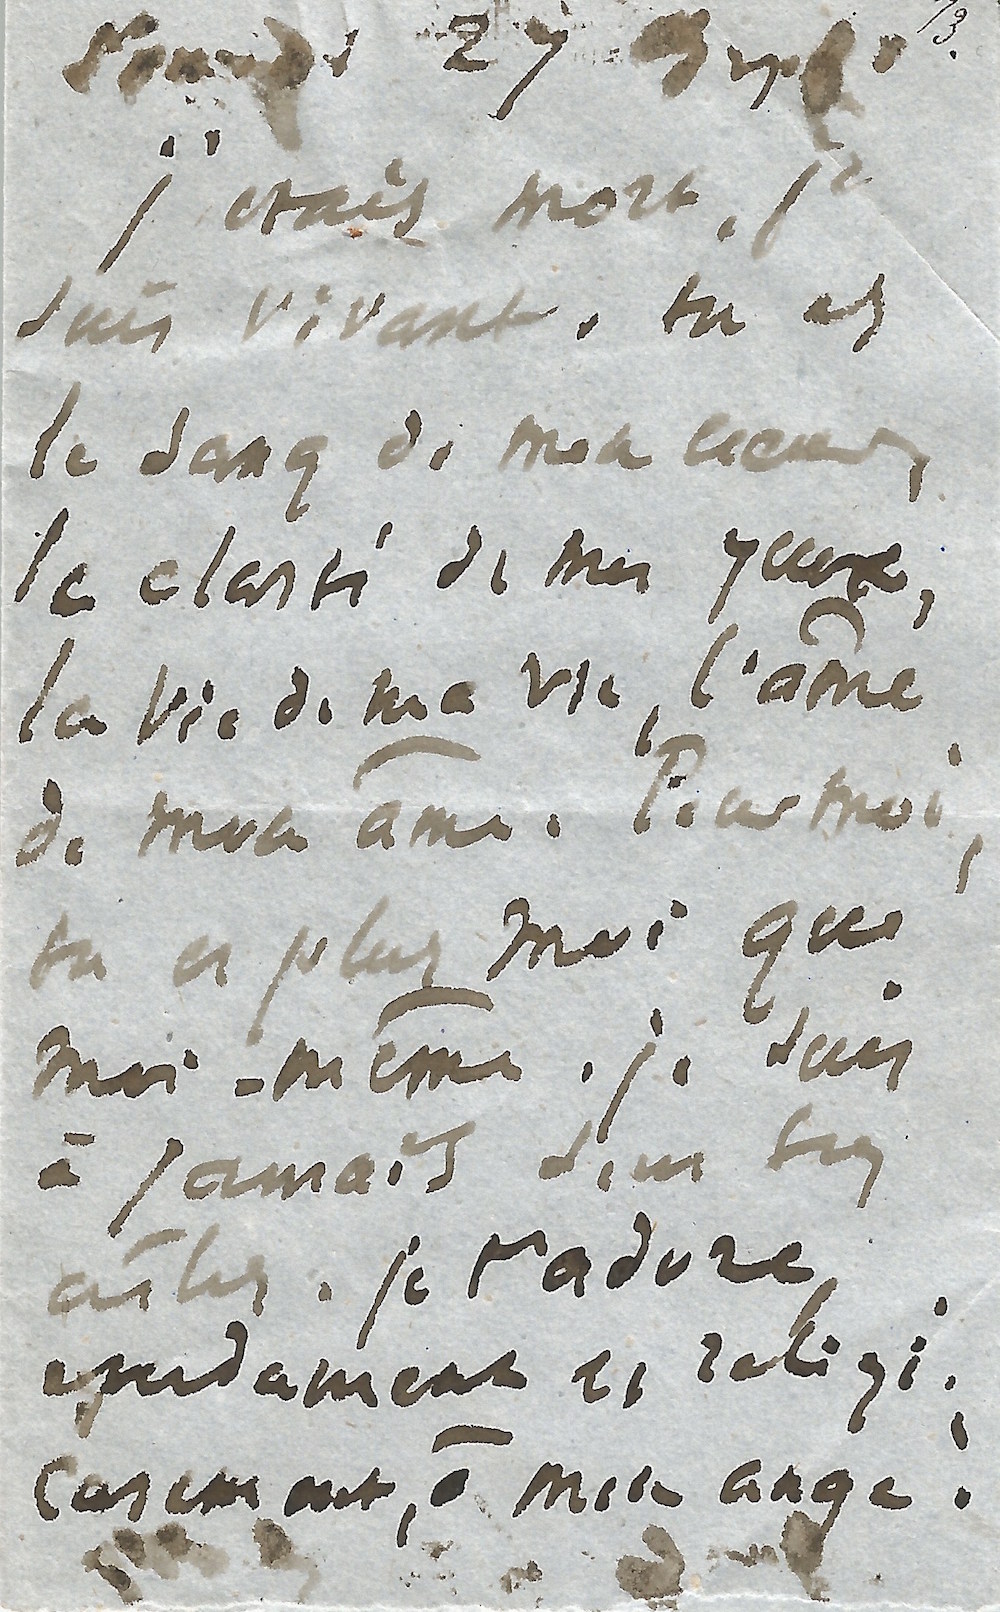 27 73.
j'étais mort, je
suis vivant. tu es
le sang de mon cœur,
la clarté de mes yeux,
la vie de ma vie, l'âme
de mon âme. Pour moi,
tu es plus moi que
moi-même. je suis
à jamais dans tes
ailes. je t'adore
éperdument et religi-
eusement, ô mon ange !